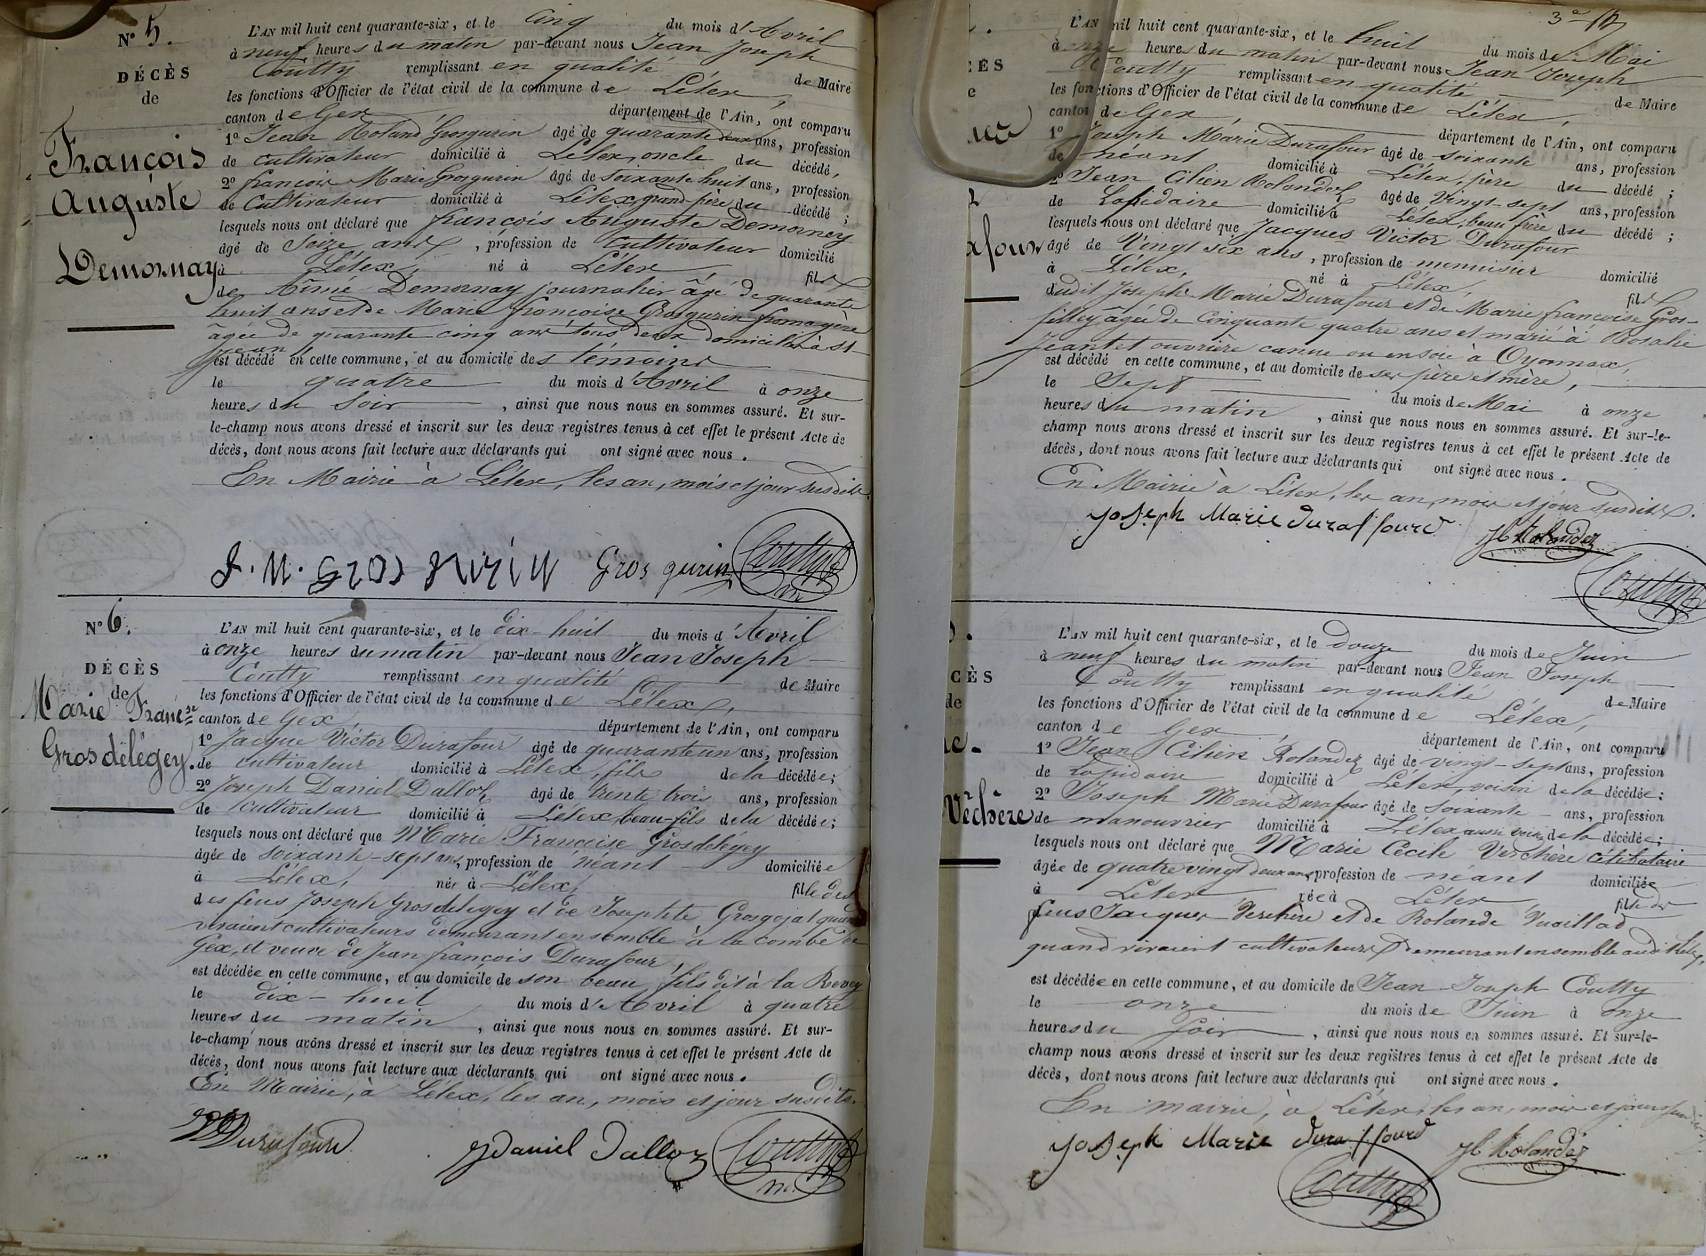 N° 5.
DÉCÈS
de
François
Auguste
Demornay
L'AN mil huit cent quarante-six, et le cinq du mois d'Avril
à neuf heures du matin par-devant nous Jean Joseph
Coutty remplissant en qualité de Maire
les fonctions d'Officier de l'état civil de la commune de Lélex,
canton de Gex département de l'Ain, ont comparu
1° Jean Roland Grosgurin âgé de quarante deux ans, profession
de cultivateur domicilié à Lélex, oncle du décédé,
2° François Marie Grosgurin âgé de soixante huit ans, profession
de Cultivateur domicilié à Lélex, grand père du décédé ;
lesquels nous ont déclaré que François Auguste Demornay
âgé de Seize ans, profession de Cultivateur domicilié
à Lélex, né à Lélex fils
de Aimé Demornay journalier âgé de quarante
huit ans et de Marie Françoise Grosgurin fromagère
âgée de quarante cinq ans tous deux domiciliés à St
Jean
est décédé en cette commune, et au domicile des témoins
le quatre du mois d'Avril à onze
heures du Soir, ainsi que nous nous en sommes assuré. Et sur-
le-champ nous avons dressé et inscrit sur les deux registres tenus à cet effet le présent Acte de
décès, dont nous avons fait lecture aux déclarants qui ont signé avec nous.
En Mairie à Lélex, les an, mois et jour susdits.
J. M. GROS GURIN Gros gurin Coutty
N° 6.
DÉCÈS
de
Marie Franç.se
Grosdelégey.
L'AN mil huit cent quarante-six, et le dix-huit du mois d'Avril
à onze heures du matin par-devant nous Jean Joseph
Coutty remplissant en qualité de Maire
les fonctions d'Officier de l'état civil de la commune de Lélex,
canton de Gex, département de l'Ain, ont comparu
1° Jacque Victor Durafour âgé de quarante un ans, profession
de cultivateur domicilié à Lélex, fils de la décédée;
2° Joseph Daniel Dalloz âgé de trente trois ans, profession
de Cultivateur domicilié à Lélex, beau-fils de la décédée;
lesquels nous ont déclaré que Marie Françoise Grosdelégey
âgée de soixante-sept ans, profession de néant domiciliée
à Lélex, née à Lélex, fille de
des feus Joseph Grosdelegey et de Grosgojat quand
vivaient cultivateurs demeurant ensemble à la combe de
Gex, et veuve de Jean François Durafour,
est décédée en cette commune, et au domicile de son beau fils dit à la
le dix-huit du mois d'Avril à quatre
heures du matin, ainsi que nous nous en sommes assuré. Et sur-
le-champ nous avons dressé et inscrit sur les deux registres tenus à cet effet le présent Acte de
décès, dont nous avons fait lecture aux déclarants qui ont signé avec nous.
En Mairie, à Lélex, les an, mois et jour susdits.
Durafourd Jh Daniel Dalloz Coutty
L'AN mil huit cent quarante-six, et le huit du mois de Mai
à onze heures du matin par-devant nous Jean Joseph
Coutty remplissant en qualité de Maire
les fonctions d'Officier de l'état civil de la commune de Lélex,
canton de Gex département de l'Ain, ont comparu
1° Joseph Marie Durafour âgé de soixante ans, profession
de néant domicilié à Lélex, père du décédé ;
2° Jean Cilien Rolandez âgé de vingt-sept ans, profession
de Lapidaire domicilié à Lélex, beau frère du décédé ;
lesquels nous ont déclaré que Jacques Victor Durafour
âgé de Vingt six ans, profession de menuisier domicilié
à Lélex, né à Lélex, fils
dudit Joseph Marie Durafour et de Marie françoise Gros-
âgée de Cinquante quatre ans et marié à Rosalie
ouvrière en soie à Oyonnax,
est décédé en cette commune, et au domicile de ses père et mère,
le Sept du mois de Mai à onze
heures du matin, ainsi que nous nous en sommes assuré. Et sur-le-
champ nous avons dressé et inscrit sur les deux registres tenus à cet effet le présent Acte de
décès, dont nous avons fait lecture aux déclarants qui ont signé avec nous.
En Mairie à Lélex, les an, mois et jour susdits.
Joseph Marie durafourd Jh Rolandez
Coutty
Verchère
L'AN mil huit cent quarante-six, et le douze du mois de Juin
à neuf heures du matin par-devant nous Jean Joseph
Coutty remplissant en qualité de Maire
les fonctions d'Officier de l'état civil de la commune de Lélex,
canton de Gex département de l'Ain, ont comparu
1° Jean Cilien Rolandez âgé de vingt-sept ans, profession
de Lapidaire domicilié à Lélex, voisin de la décédée;
2° Joseph Marie Durafour âgé de soixante ans, profession
de manouvrier domicilié à Lélex, aussi voisin de la décédée;
lesquels nous ont déclaré que Marie Cécile Verchère célibataire
âgée de quatre vingt deux ans, profession de néant domiciliée
à Lélex née à Lélex, fille de
feus Jacques Verchère et de Rolande Vuaillad
quand vivaient cultivateurs demeurant ensemble audit Lélex,
est décédée en cette commune, et au domicile de Jean Joseph Coutty
le onze du mois de Juin à onze
heures du Soir, ainsi que nous nous en sommes assuré. Et sur-le-
champ nous avons dressé et inscrit sur les deux registres tenus à cet effet le présent Acte de
décès, dont nous avons fait lecture aux déclarants qui ont signé avec nous.
En mairie, à Lélex, les an, mois et jour susdits.
Joseph Marie durafourd Jh Rolandez
Coutty